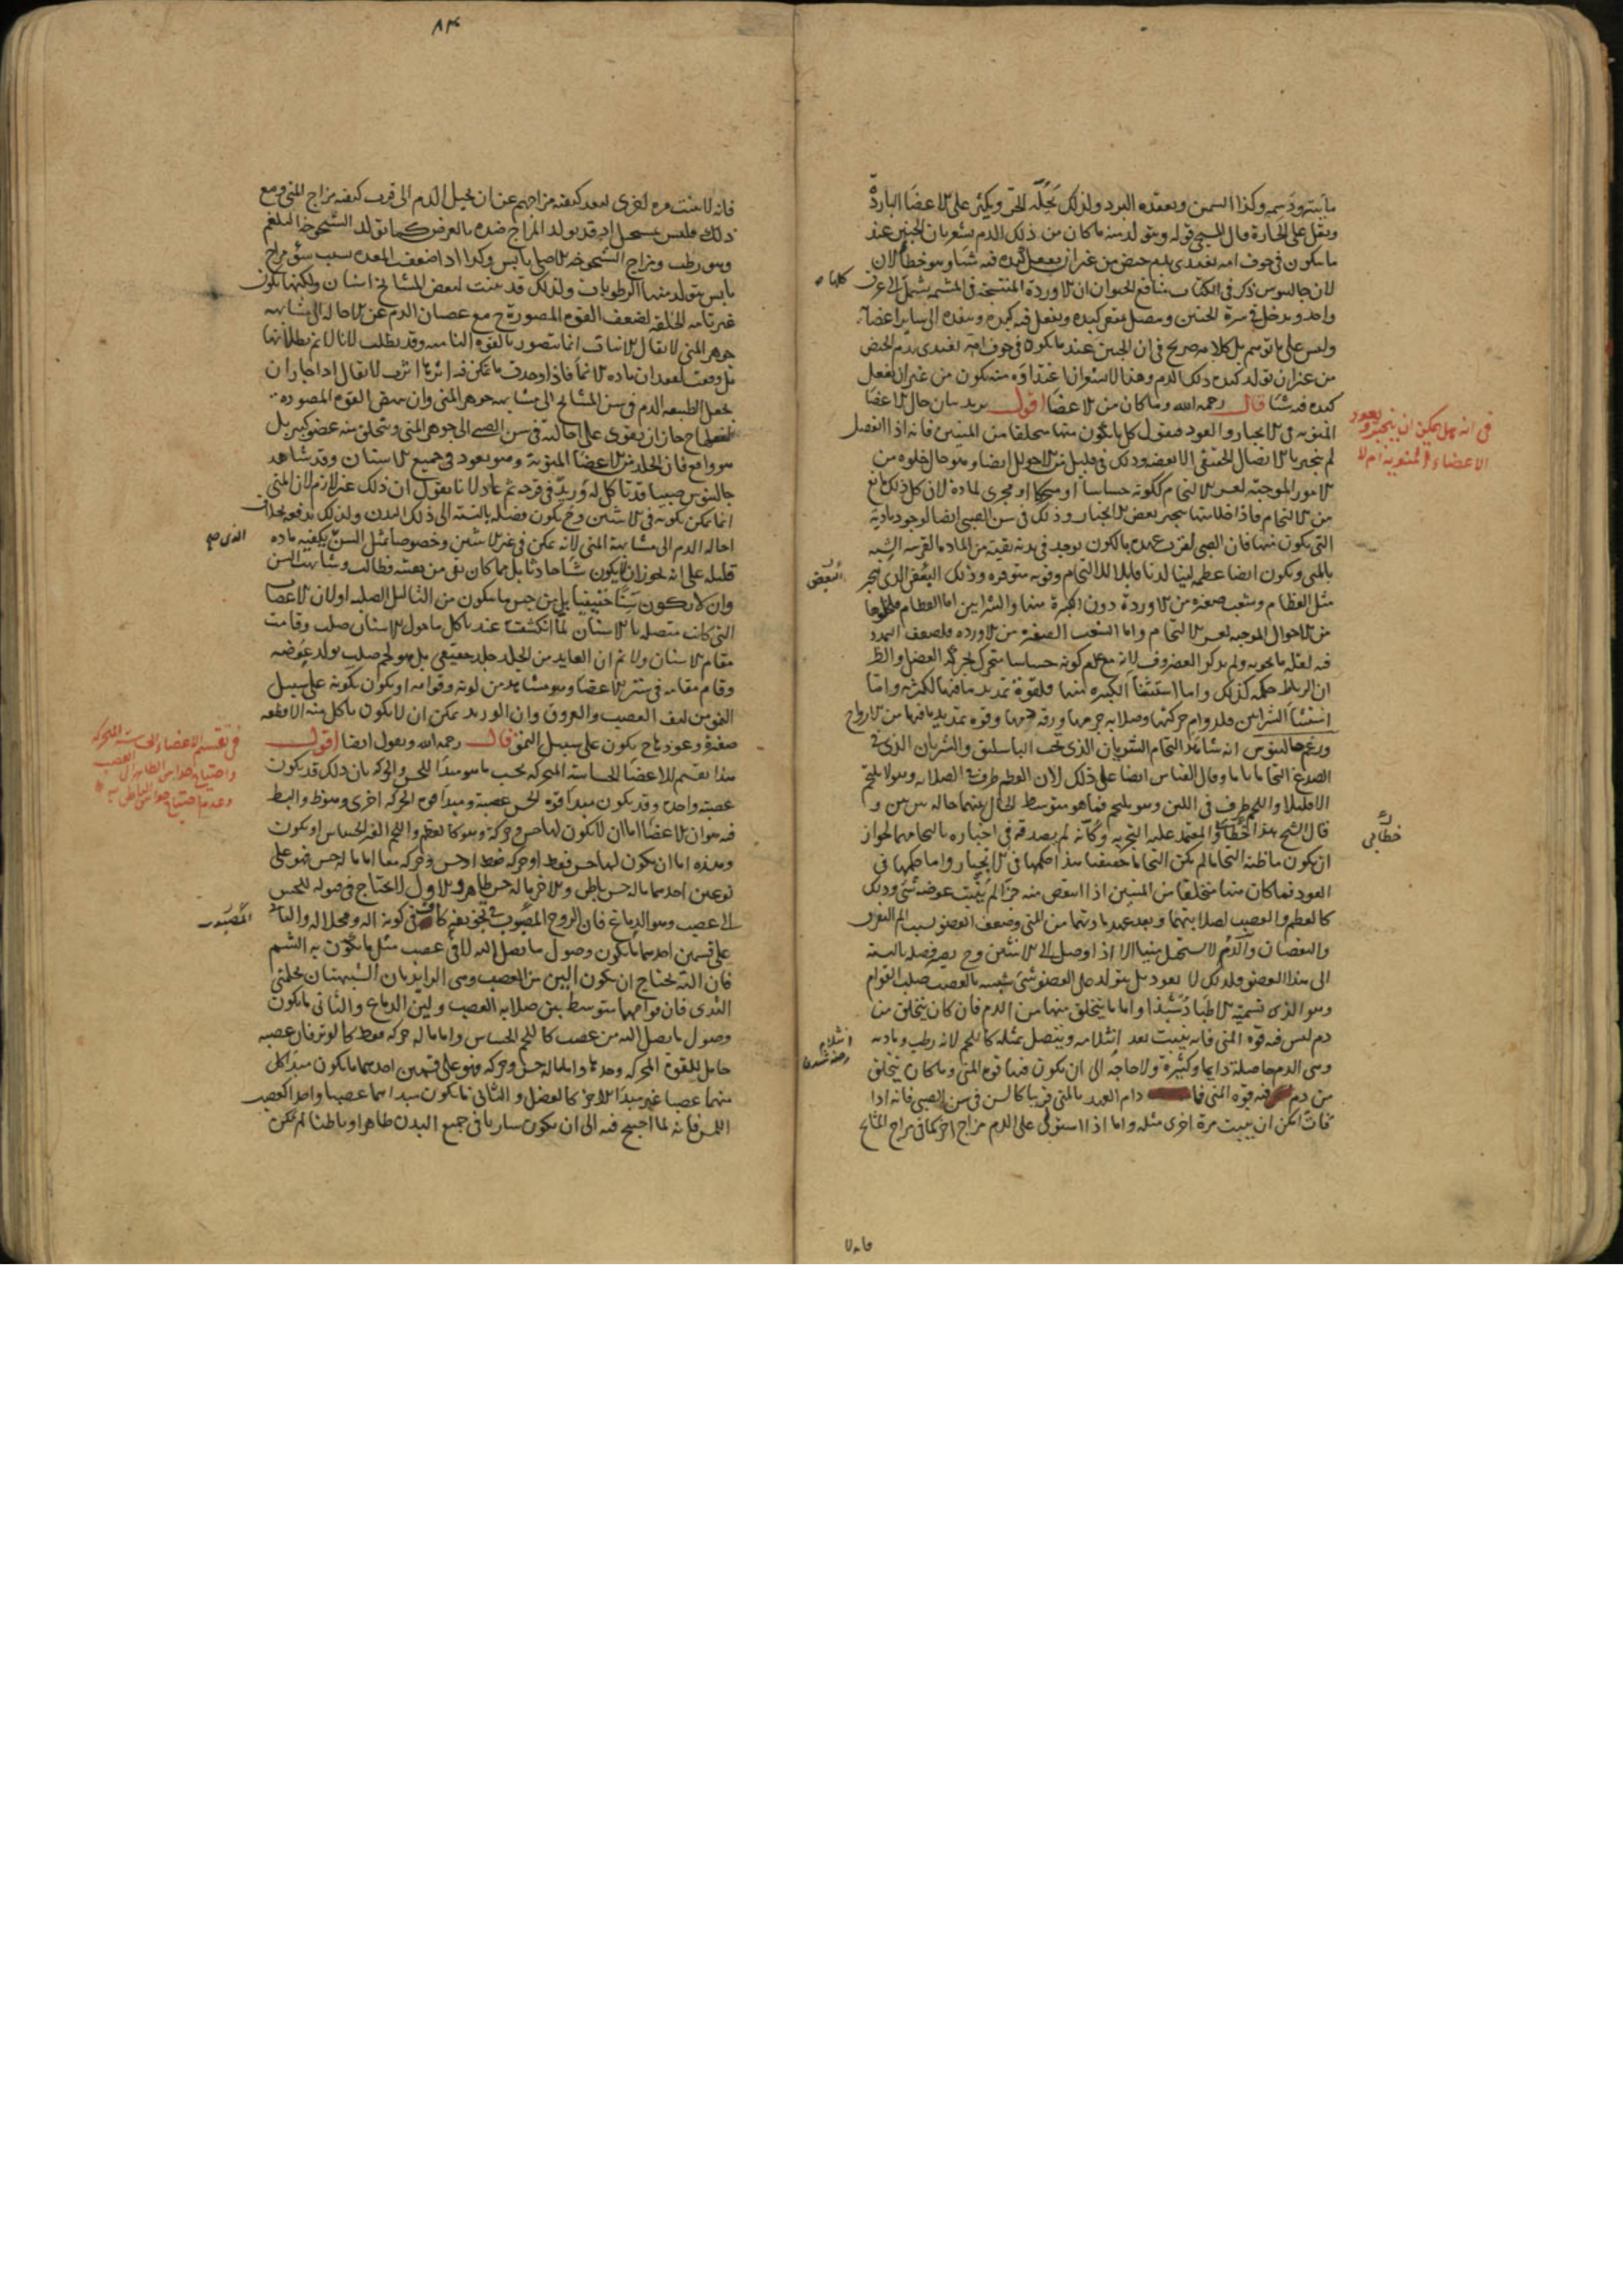 مائيته ودسمه وكذا السمين ويعقده البرد ولذلك يحلّه الحرّ ويكثر على الاعضاء الباردة
ويقل على الحارة قال المسيحى قوله ويتولد منه ما كان من ذلك الدم يشعر بان الجنين عند
ما يكون فى جوف امه يغتذى بدم حيض من غير ان يفعل كبده فيه شيئا وهو خطأ لان
لان جالينوس ذكر فى الكتاب منافع الحيوان ان الاوردة المنتسجة فى المشيمة يشتمل الى عرق
واحد ويدخل فى سرة الجنين ويتصل بمقعر كبده ويفعل فيه كبده وينفذه الى ساير اعضائه
وليس على ما توهم بل كلامه صريح فى ان الجنين عند ما يكون فى جوف امه يغتذى بدم الحيض
من غير ان تولد كبده ذلك الدم وهذا لا
كبده فيه شيئا قال رحمه الله وما كان من الاعضاء اقول يريد بيان حال الاعضاء
المنوية فى الانجبار والعود فيقول كل ما يكون منها متخلقا من المنيين فانه اذا انفصل
لم ينجبر بالاتصال الحقيقى الا بعضه وذلك فى قليل من الاحوال ايضا وهو حال خلوه من
الامور الموجبة لعسر الالتحام ككونه حساسا او متحركا او مجرى لمادة لان كل ذلك مانع
من الالتحام فاذا خلا منها ينجبر بعض الانجبار وذلك فى سن الصبى ايضا لوجود مادته
التى يكون منها فان الصبى لقرب عهده بالكون يوجد فى بدنه بقية من المادة القريبة الشبه
بالمنى ويكون ايضا عظمه لينا لدنا قابلا للالتحام وقوته متوفرة وذلك البعض الذى ينجبر
مثل العظام وشعب صغيرة من الاوردة دون الكبيرة منها والشرايين اما العظام فلخلوها
من الاحوال الموجبة لعسر الالتحام واما الشعب الصغيرة من الاوردة فلضعف التمدد
فيه لقلة ما يحويه ولم يذكر الغضروف لانه مع عدم كونه حساسا متحرك لحركة العضل والظ
ان الرباط حكمه كذلك واما استثنأ الكبيرة منها فلقوة تمديد ما فيها لكثرته واما
استثنأ الشرايين فلدوام حركتها وصلابة جرمها ورقة دمها وقوة تمديد ما فيها من الارواح
وزعم جالينوس انه شاهد التحام الشريان الذى تحت الباسليق والشريان الذى فى
الصدغ التحاما تاما وقال القياس ايضا على ذلك لان العظم طرف فى الصلابه وهو لا يلتحم
الا قليلا واللحم طرف فى اللين وهو يلتحم فما هو متوسط الحال بينهما حاله بين بين و
قال الشيخ هذا خطابى والمعتمد عليه التجربه وكأنه لم يصدقه فى اخباره بالتحامهما لجواز
ان يكون ما ظنه التحاما لم يكن التحاما حقيقيا هذا حكمها فى الانجبار واما حكمها فى
العود فما كان منها متخلقا من المنيين اذا انتقص منه جزء لم ينبت عوضه شئ وذلك
كالعظم والعصب لصلابتهما وبعد عهد مادتهما من المنى وضعف العضو بسبب الم التفرق
والنقصان والدم لا يستحيل منيا الا اذا وصل الى الانثيين
الى هذا العضو فلذلك لا يعود بل يتولد على العضو شئ شبيه بالعصب صلب القوام
وهو الذى تسميه الاطبا دشبذا واما ما يتخلق منها من الدم فان كان يتخلق من
دم ليس فيه قوة المنى فانه ينبت بعد انثلامه ويتصل بمثله كاللحم لانه رطب ومادته
وهى الدم حاصلة دايما وكثيرة ولا حاجة الى ان يكون فيها قوة المنى وما كان يتخلق
من دم فيه قوة المنى فما دام العهد بالمنى قريبا كالسن فى سن الصبى فانه اذا
فات امكن ان ينبت مرة اخرى مثله واما اذا استولى على الدم مزاج اخر كما فى مزاج المشايخ
فانه لا
كلها
فى انه هل يمكن ان ينجبر ويعود
الاعضاء المنوية ام لا
البعض
خطابى
انثلام
رخنه شدن
٨٣
فانه لا ينبت مرة اخرى لبعد كيفية مزاجهم عن ان يحيل الدم الى قرب كيفية مزاج المنى ومع
ذلك فليس بمستحيل اذ قد يولد المزاج ضده بالعرض كما تولد الشيخوخة البلغم
وهو رطب ومزاج الشيخوخة الاصلى يابس وكذا اذا ضعف المعدة بسبب سوء مزاج
يابس يتولد منها الرطوبات ولذلك قد ينبت لبعض المشايخ اسنان ولكنها يكون
غير تامة الخلقة لضعف القوة المصورة ح مع عصيان الدم عن الاحالة الى مشابهة
جوهر المنى لا يقال الانبات انما يتصور بالقوة النامية وقد بطلت لانا لا نم بطلانها
بل وقفت لفقدان مادة الانماء فاذا وجدت ما يمكن فيه اثرها اثرت لا يقال اذا جاز ان
يحيل الطبيعة الدم فى سن المشايخ الى مشابهة جوهر المنى وان يبقى القوة المصورة
لفعلها ح جاز ان يقوى على احالته فى سن الصبى الى جوهر المنى ويتخلق منه عضو كبير بل
هو واقع فان الجلد من الاعضاء المنوية وهو يعود فى جميع الاسنان وقد شاهد
جالينوس صبيا قد تأكل له وريد فى قرحة ثم عاد لانا نقول ان ذلك غير لازم لان المنى
انما يمكن تكونه فى الانثيين
احالة الدم الى مشابهة المنى لانه يمكن فى غير الانثيين وخصوصا مثل السن يكفيه مادة
قليله على انه يجوز ان لا يكون شيئا حادثا بل مما كان بقى من بقيته فطالت وشابهت السن
وان لا يكون سنا حقيقيا بل من جنس ما يتكون من الثآليل الصلبة او لان الاعصاب
التى كانت متصلة بالاسنان لما انكشفت عند تأكل ما حول الاسنان صلب وقامت
مقام الاسنان ولا نم ان العايد من الجلد جلد حقيقى بل هو لحم صلب تولد عوضه
وقام مقامه فى ستر الاعضاء وهو مشاهد من لونه وقوامه او يكون تكونه على سبيل
النمو من ليف العصب والعروق وان الوريد يمكن ان لا يكون تأكل منه الا قطعة
صغيرة وعودها ح يكون على سبيل النمو قال رحمه الله ونقول ايضا اقول
هذا تقسيم للاعضاء الحساسة المتحركة بحسب ما هو مبدأ للحس والحركة بان ذلك قد يكون
عصبة واحدة وقد يكون مبدأ قوة الحس عصبة ومبدأ قوة الحركة اخرى وهو ظ والبسط
فيه هو ان الاعضاء اما ان لا يكون لها حس وحركة وهو كالعظم واللحم الغير الحساس او يكون
وهذه اما ان يكون لها حس فقط او حركة فقط او حس وحركة معا اما ما له حس فهو على
نوعين احدهما ما له حس باطن والاخر ما له حس ظاهر والاول لا يحتاج فى قبوله للحس
الى عصب وهو الدماغ فان الروح المصبوب فى تجويفه كاف فى كونه آلة ومحلا له والثانى
على قسمين احدهما ما يكون وصول ما يصل اليه لا فى عصب مثل ما يكون به الشم
فان آلته يحتاج ان يكون الين من العصب وهى الزايدتان الشبيهتان بحلمتى
الثدى فان قوامهما متوسط بين صلابة العصب ولين الدماغ والثانى ما يكون
وصول ما يصل اليه من عصب كاللحم الحساس واما ما له حركة فقط كالوتر فان عصبه
حامل للقوة المحركة وحدها واما ما له حس وحركة فهو على قسمين احدهما ما يكون مبدأ كل
منهما عصبا غير مبدأ الاخر كالعضل والثانى ما يكون مبدأهما عصبا واحدا كعصب
اللمس فانه لما احتيج فيه الى ان يكون ساريا فى جميع البدن ظاهرا وباطنا لم يمكن
فى تقسيم الاعضاء الحساسة المتحركة
واحتياج حواس الظاهر الى العصب
وعدم احتياج حواس الباطن به
المصبوب